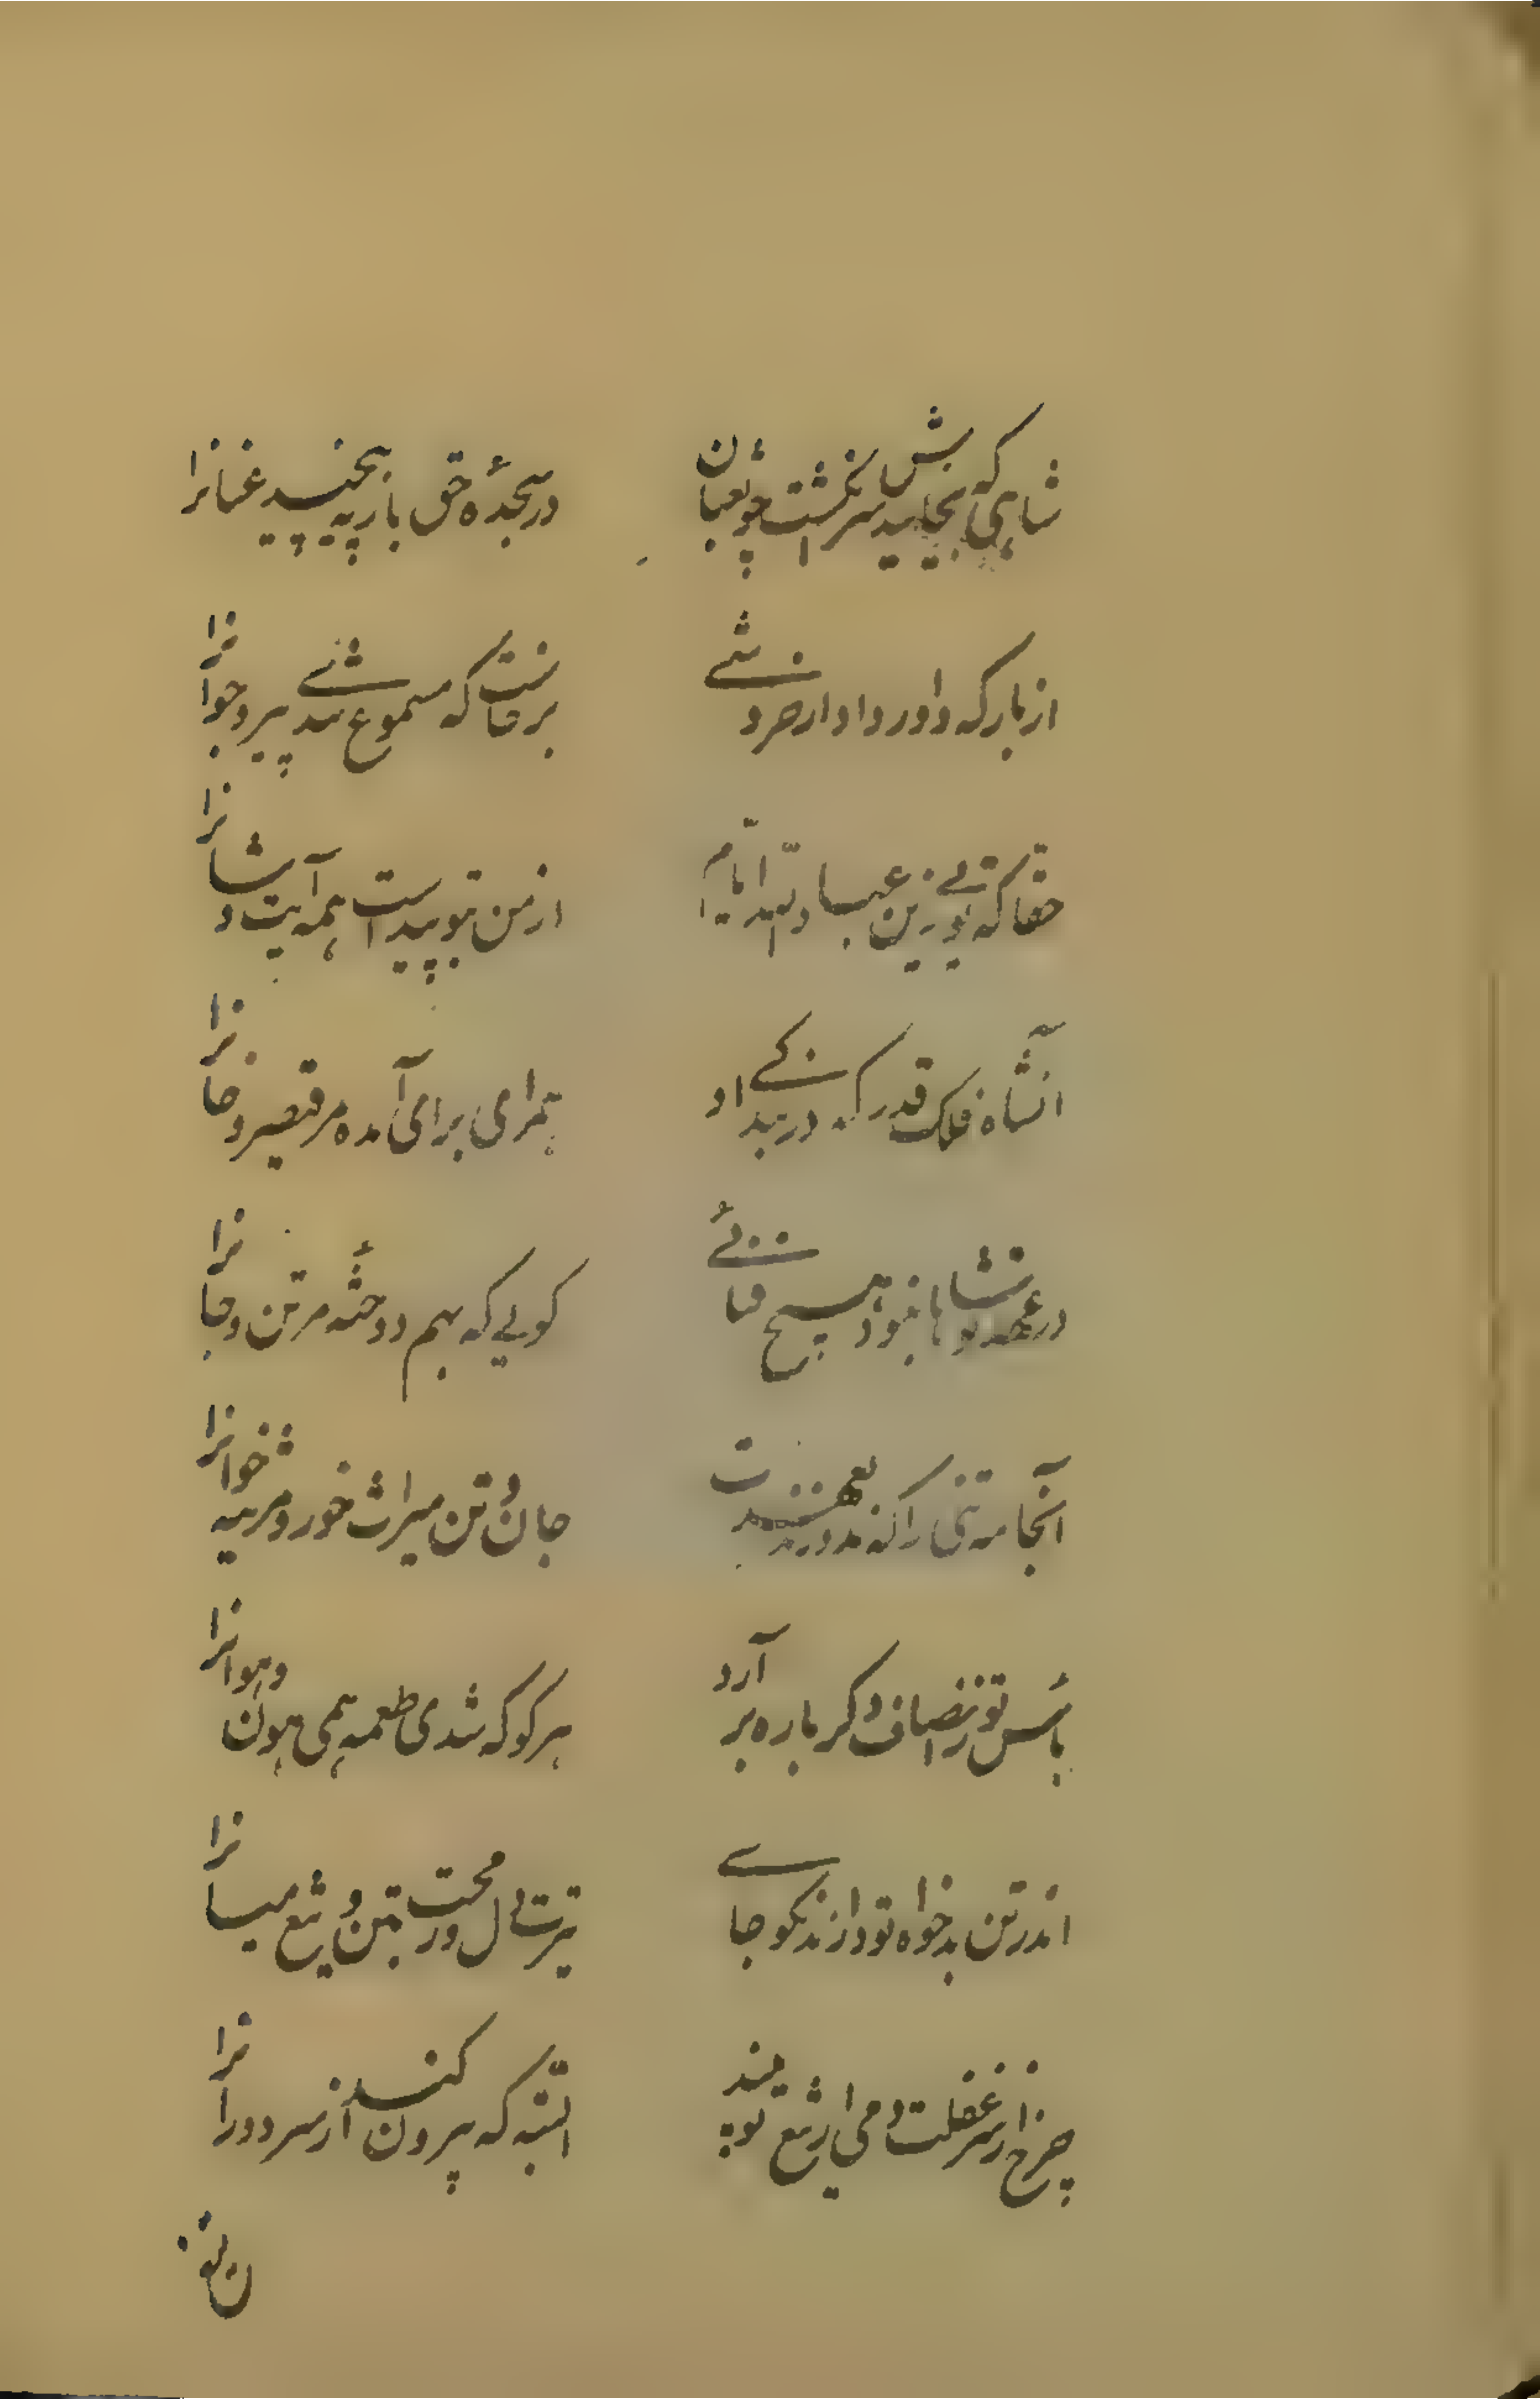 شاهی که بجایید سرانگشتش چو ثعبان
در سجدهٔ حق باز پیچید عنانرا
از بارکه داور دادار خروشے
برخاست که مسموع شدے پیر و جوانرا
حقا که توئے زین عباد و تو امام
از من تو پدید است همه آیت و شانرا
آنشاه فلک قدر که در بندکے او
همرای برای آمده مر قیصر و خانرا
در عهد تو شاها نبود هیچ فنائے
کویی که بهم دوختهٔ مر تن و جانرا
آنجامه تنی را که ندوزند
جان و تن میراث خور و مرثیه خوانرا
بأس تو ز انصاف دکر باره برآرد
هر کو که شدی طعمه همی هون و هوانرا
اندر تن بدخواه تو دارند نکو جاے
تیرت دل و رمحت تن و تیغ میانرا
چرخ ار سر غفلت دمی از تیغ تو پیند
البته که بیرون کند از سر دورانرا